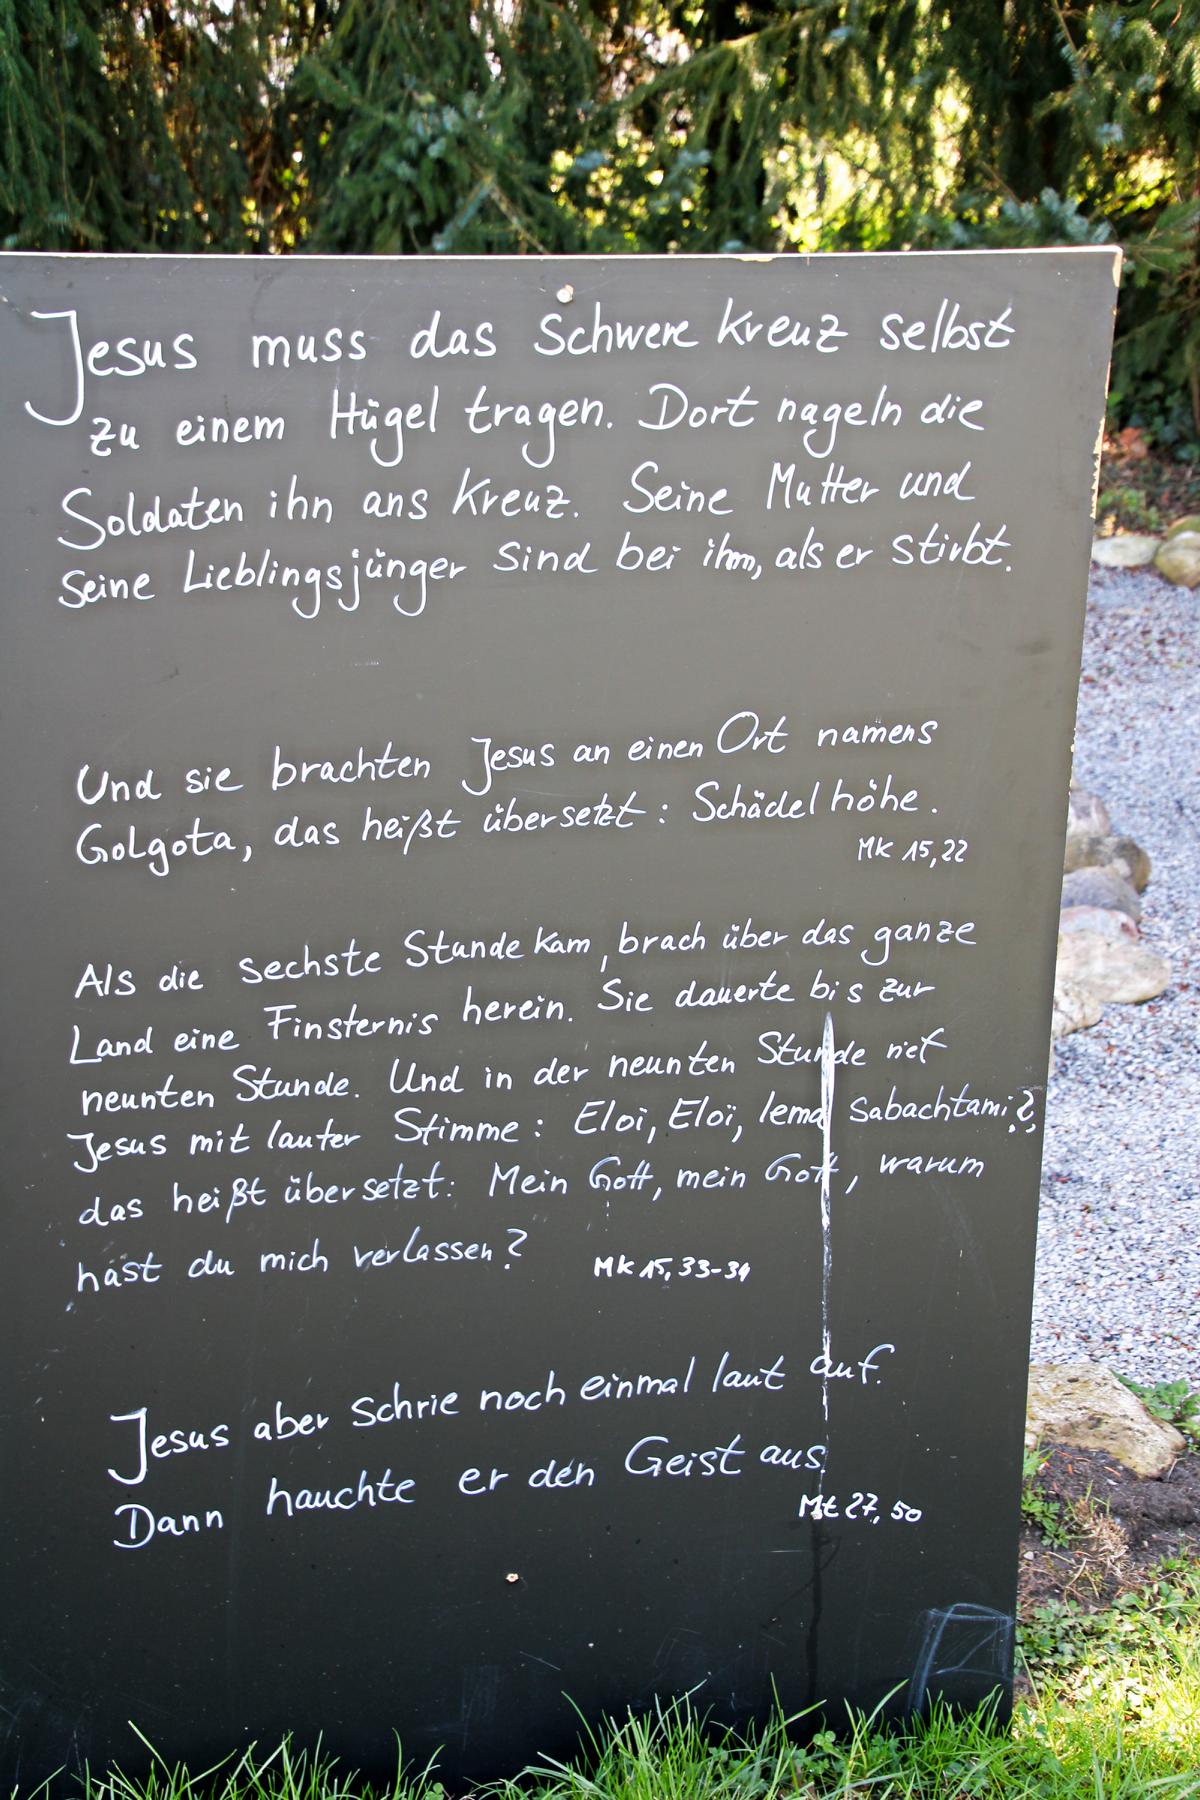 Jesus muss das schwere Kreuz selbst
zu einem Hügel tragen. Dort nageln die
Soldaten ihn ans Kreuz. Seine Mutter und
seine Lieblingsjünger sind bei ihm, als er stirbt.
Und sie brachten Jesus an einen Ort namens
Golgota, das heißt übersetzt: Schädelhöhe.
Mk 15,22
Als die sechste Stunde kam, brach über das ganze
Land eine Finsternis herein. Sie dauerte bis zur
neunten Stunde. Und in der neunten Stunde rief
Jesus mit lauter Stimme: Eloï, Eloï, lema sabachtami?,
das heißt übersetzt: Mein Gott, mein Gott, warum
hast du mich verlassen? Mk 15,33-34
Jesus aber schrie noch einmal laut auf.
Dann hauchte er den Geist aus.
Mt 27,50